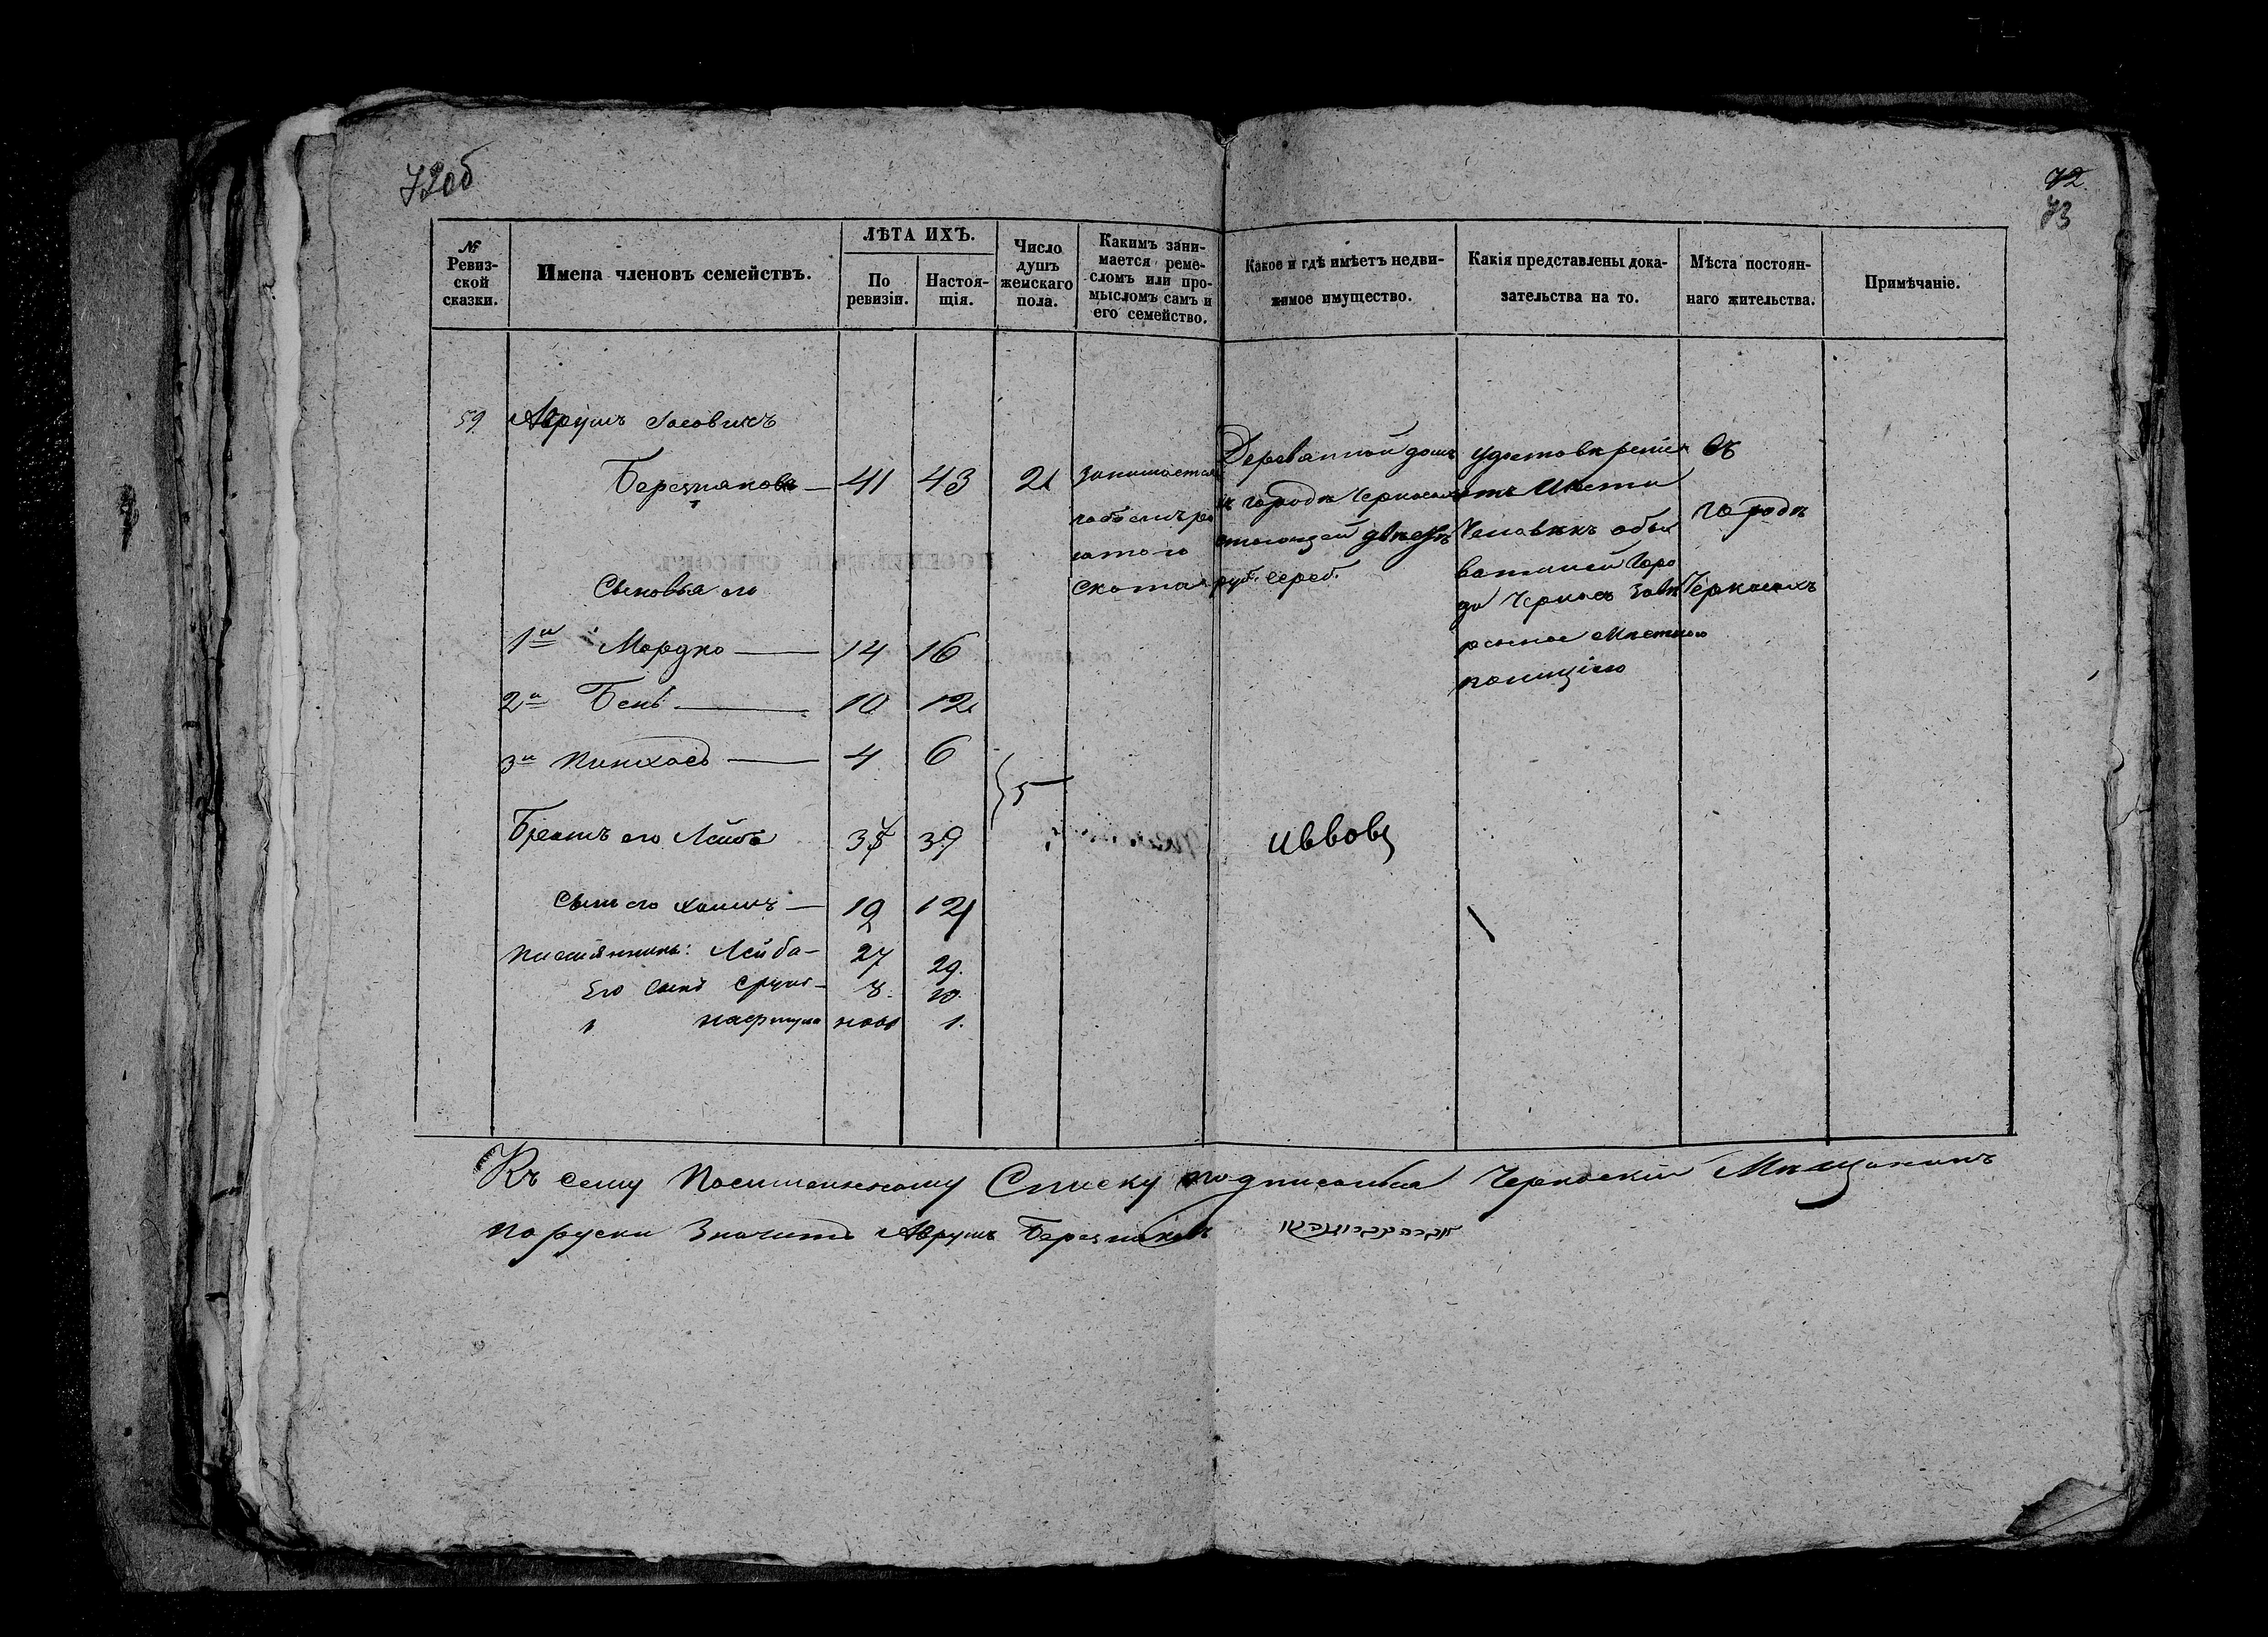 72об
72
73
№ Ревиз-
ской
сказки.
Имена членовъ семействъ.
ЛѢТА ИХЪ.
По
ревизіи.
Настоя-
щія.
Число
душъ
женскаго
пола.
Какимъ зани-
мается реме-
сломъ или про-
мысломъ самъ и
его семейство.
Какое и гдѣ имѣетъ недви-
жимое имущество.
Какія представлены дока-
зательства на то.
Мѣста постоян-
наго жительства.
Примѣчаніе.
59 Аврумъ
Березняковъ — 41 43 2
занимается
скота
Деревянной домъ
въ городѣ Черкасахъ
стоющей
руб. сереб.
отъ шести
Человѣкъ обы
вателей Горо
да Черкасъ завѣ
ренное мѣстною
полиціею
Въ
городѣ
Черкасахъ
Сыновья его
1й Мордко — 14 16
2й Бень — 10 12
3й Пинхасъ — 4 6
5
Братъ его Лейба 37 39
Сынъ его Хаимъ — 19 21
Племянникъ: Лейба — 27 29.
Его сынъ Срулъ — 8. 10.
" Нафтула новъ 1.
Къ сему Посемейному Списку подписался Черкаскій Мѣщанинъ
по руски Значитъ Аврумъ Березняковъ